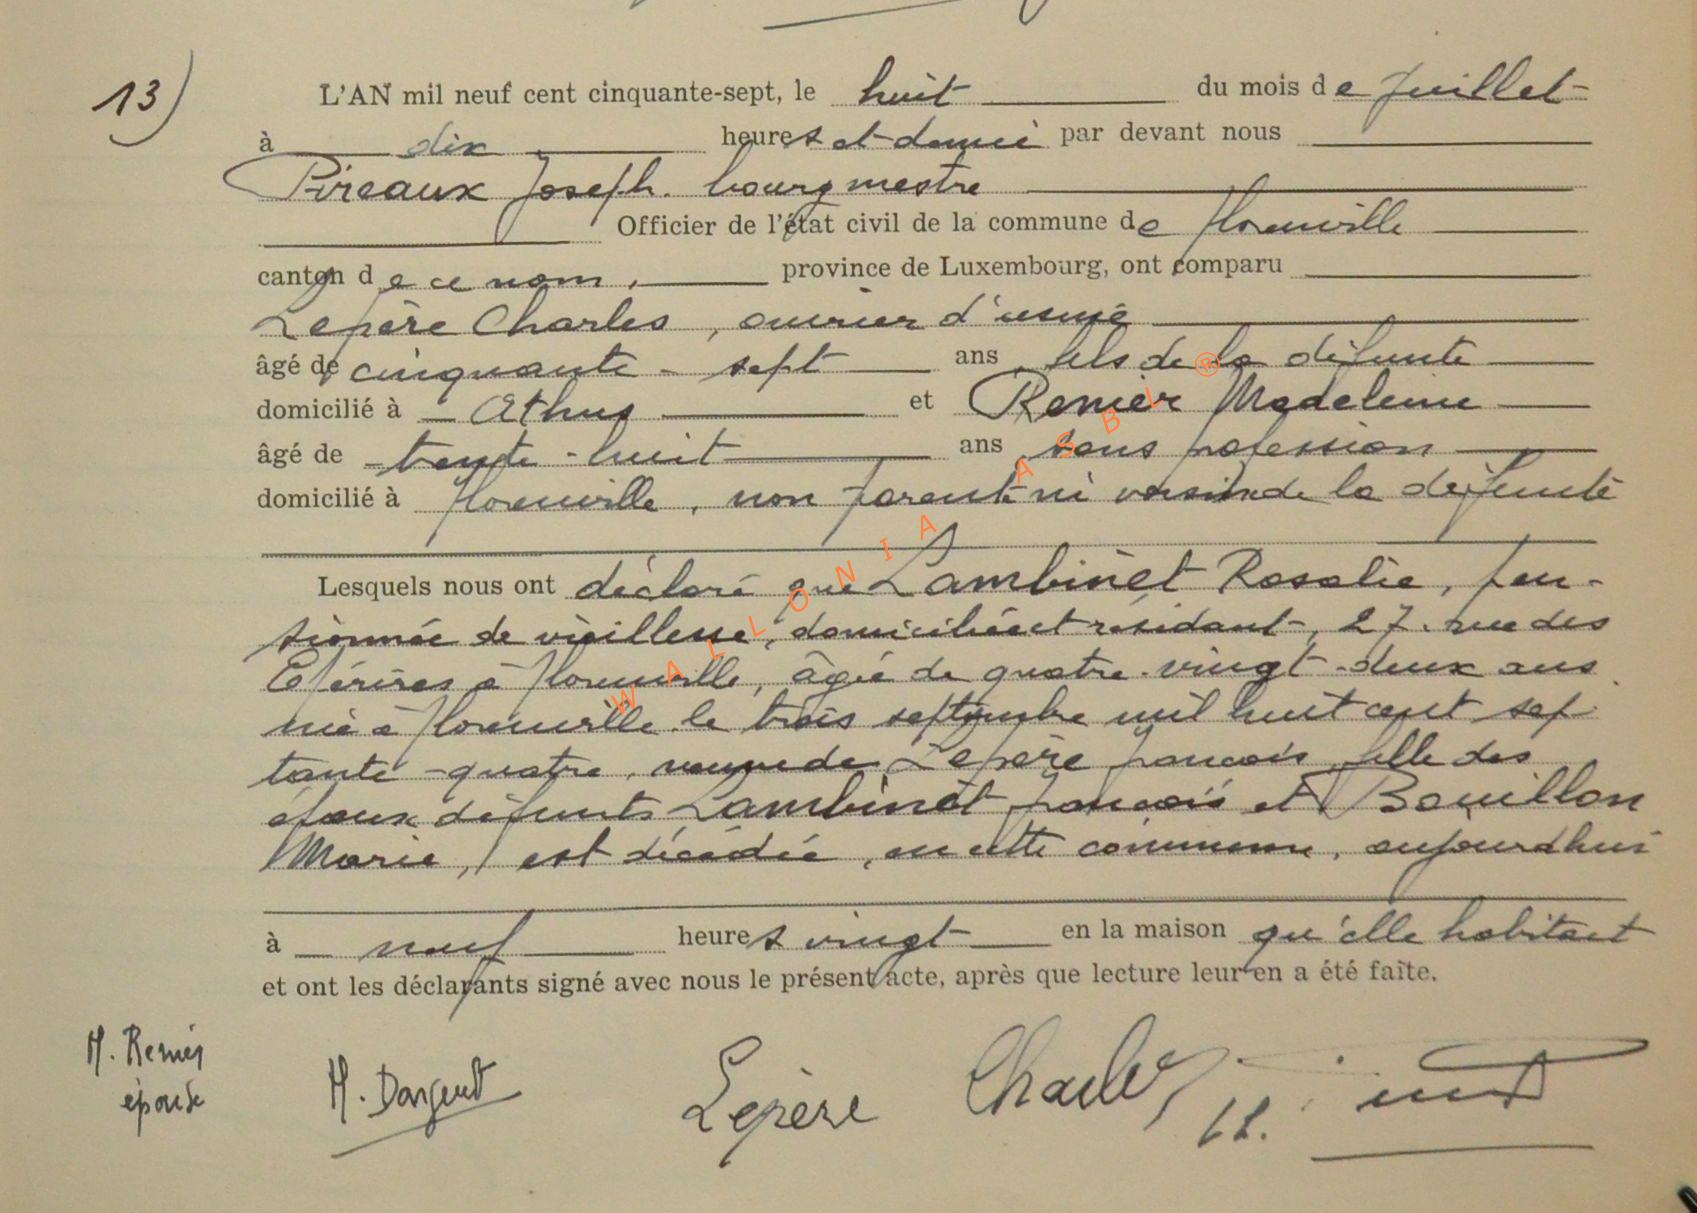 13)
L'AN mil neuf cent cinquante-sept, le huit du mois de Juillet
à dix heures et demie par devant nous
Pireaux Joseph. bourgmestre
Officier de l'état civil de la commune de Florenville
canton de ce nom, province de Luxembourg, ont comparu
Lepère Charles, ouvrier d'usine
âgé de cinquante-sept ans, fils de la défunte
domicilié à Athus et Renier Madeleine
âgé de trente-huit ans, sans profession
domicilié à Florenville, non parente ni voisine de la défunte
Lesquels nous ont déclaré que Lambinet Rosalie, pen-
sionnée de vieillesse, domiciliée et résidant, 27, rue des
Epérires à Florenville, âgée de quatre-vingt-deux ans
née à Florenville le trois septembre mil huit cent sep-
tante-quatre, veuve de Lepère François, fille des
époux défunts Lambinet François et Bouillon
Marie, est décédée, en cette commune, aujourd'hui
à neuf heures vingt en la maison qu'elle habitait
et ont les déclarants signé avec nous le présent acte, après que lecture leur en a été faite.
M. Renier
épouse
M. Dargent
Lepère Charles
WALLONIA ASBL ®